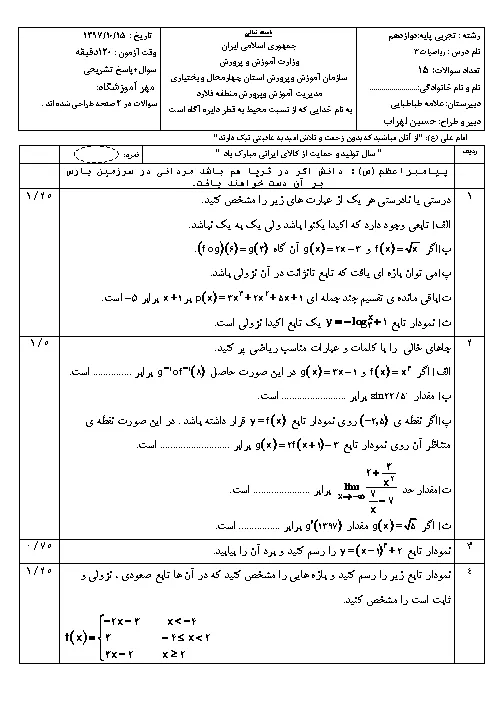 باسمه تعالی
رشته : تجربی پایه:دوازدهم
نام درس : ریاضیات۳
تعداد سوالات: ۱۵
نام و نام خانوادگی:..........................
دبیرستان:علامه طباطبایی
دبیر و طراح: حسین لهراب
جمهوری اسلامی ایران
وزارت آموزش و پرورش
سازمان آموزش وپرورش استان چهارمحال وبختیاری
مدیریت آموزش وپرورش منطقه فلارد
به نام خدایی که از نسبت محیط به قطر دایره آگاه است
تاریخ : ۱۳۹۷/۱۰/۱۵
وقت آزمون : ۱۲۰دقیقه
سوال+پاسخ تشریحی
مهر آموزشگاه:
سوالات در ۲ صفحه طراحی شده اند .
امام علی (ع): "از آنان مباشید که بدون زحمت و تلاش امید به عاقبتی نیک دارند"
ردیف
" سال تولید و حمایت از کالای ایرانی مبارک باد "
نمره:
پیامبراعظم(ص): دانش اگر در ثریا هم باشد مردانی در سرزمین پارس بر آن دست خواهند یافت.
۱
درستی یا نادرستی هر یک از عبارت های زیر را مشخص کنید.
۱/۲۵
الف) تابعی وجود دارد که اکیدا یکنوا باشد ولی یک به یک نباشد.
ب)اگر f(x)=√x و g(x)=2x-3 آن گاه (fog)(6)=g(3).
پ)می توان بازه ای یافت که تابع تانژانت در آن نزولی باشد.
ت)باقی مانده ی تقسیم چند جمله ای p(x)=3x³+2x²+5x+1 بر x+1 برابر -5 است.
ث) نمودار تابع y=-log₂ˣ+1 یک تابع اکیدا نزولی است.
۲
جاهای خالی را با کلمات و عبارات مناسب ریاضی پر کنید.
۱/۵
الف)اگر f(x)=x³ و g(x)=3x-1 در این صورت حاصل g⁻¹of⁻¹(8) برابر ............... است.
ب) مقدار sin22/5° برابر ......................... است.
پ)اگر نقطه ی (-2,5) روی نمودار تابع y=f(x) قرار داشته باشد . در این صورت نقطه ی
متناظر آن روی نمودار تابع g(x)=2f(x+1)-3 برابر ........................... است.
ت)مقدار حد lim x→-∞ (2+3/x²)/(7/x-7) برابر ...................... است.
ث) اگر g(x)=√5 مقدار g′(1397) برابر ................ است.
۳
نمودار تابع y=(x-1)³+2 را رسم کنید و برد آن را بیابید.
۰/۷۵
۴
نمودار تابع زیر را رسم کنید و بازه هایی را مشخص کنید که در آن ها تابع صعودی ، نزولی و
۱/۲۵
ثابت است را مشخص کنید.
f(x)={ -2x-3 x<-4
3 -4≤x<2
3x-2 x≥2